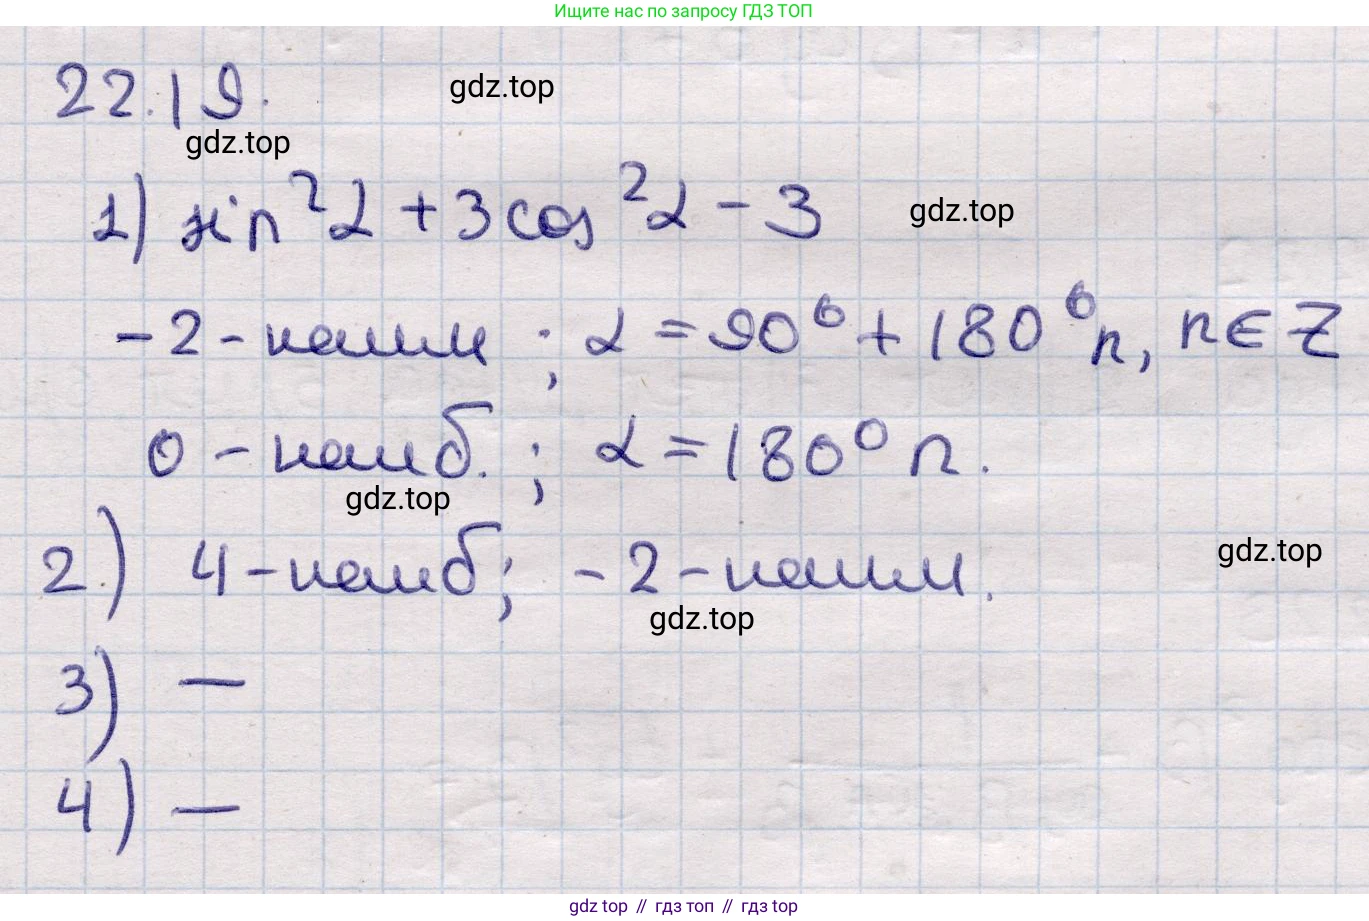 Ищите нас по запросу ГДЗ ТОП
22.19.
gdz.top
gdz.top
1) sin²α + 3cos²α - 3
gdz.top
-2 - наим ; α = 90⁰ + 180⁰n, n∈Z
0 - наиб. ; α = 180⁰n.
gdz.top
2.) 4 - наиб; -2 - наим.
gdz.top
gdz.top
3) —
4) —
gdz top // гдз топ // gdz top